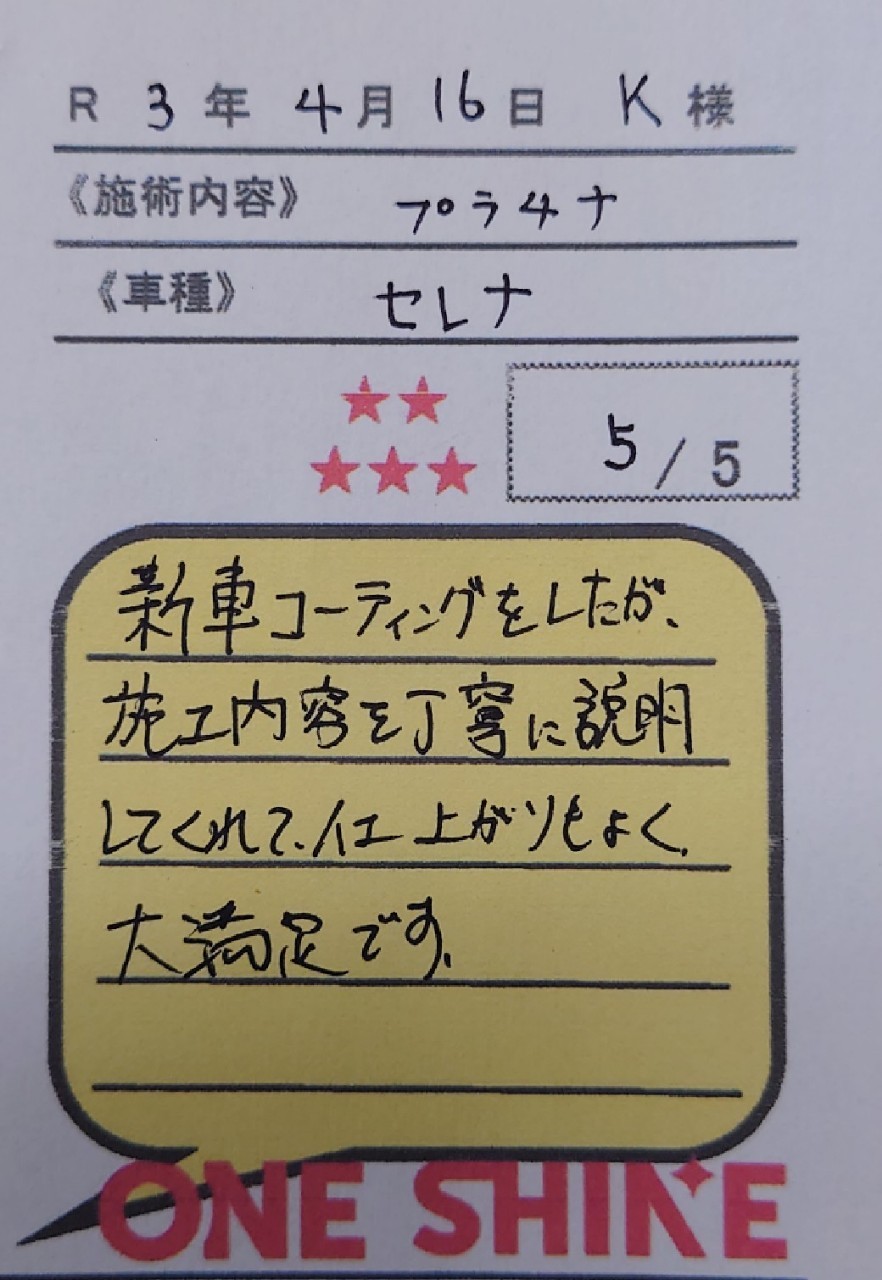 R 3年 4月 16日 K 様
《施術内容》 プラチナ
《車種》 セレナ
★★
★★★
5/5
新車コーティングをしたが、
施工内容を丁寧に説明
してくれて、仕上がりもよく、
大満足です。
ONE SHINE